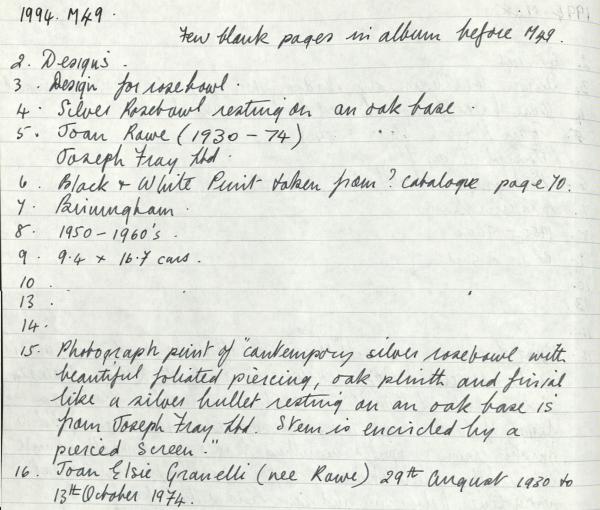 1994. M49.
Few blank pages in album before M49.
2. Designs.
3. Design for rosebowl.
4. Silver Rosebowl resting on an oak base.
5. Joan Rawe (1930 - 74)
Joseph Fray Ltd.
6. Black & White Print taken from ? catalogue page 70.
7. Birmingham.
8. 1950 - 1960's.
9. 9.4 x 16.7 cms.
10
13.
14.
15. Photograph print of "contempory silver rosebowl with
beautiful foliated piercing, oak plinth and finial
like a silver bullet resting on an oak base is
from Joseph Fray Ltd. Stem is encircled by a
pierced screen."
16. Joan Elsie Granelli (nee Rawe) 29th August 1930 to
13th October 1974.